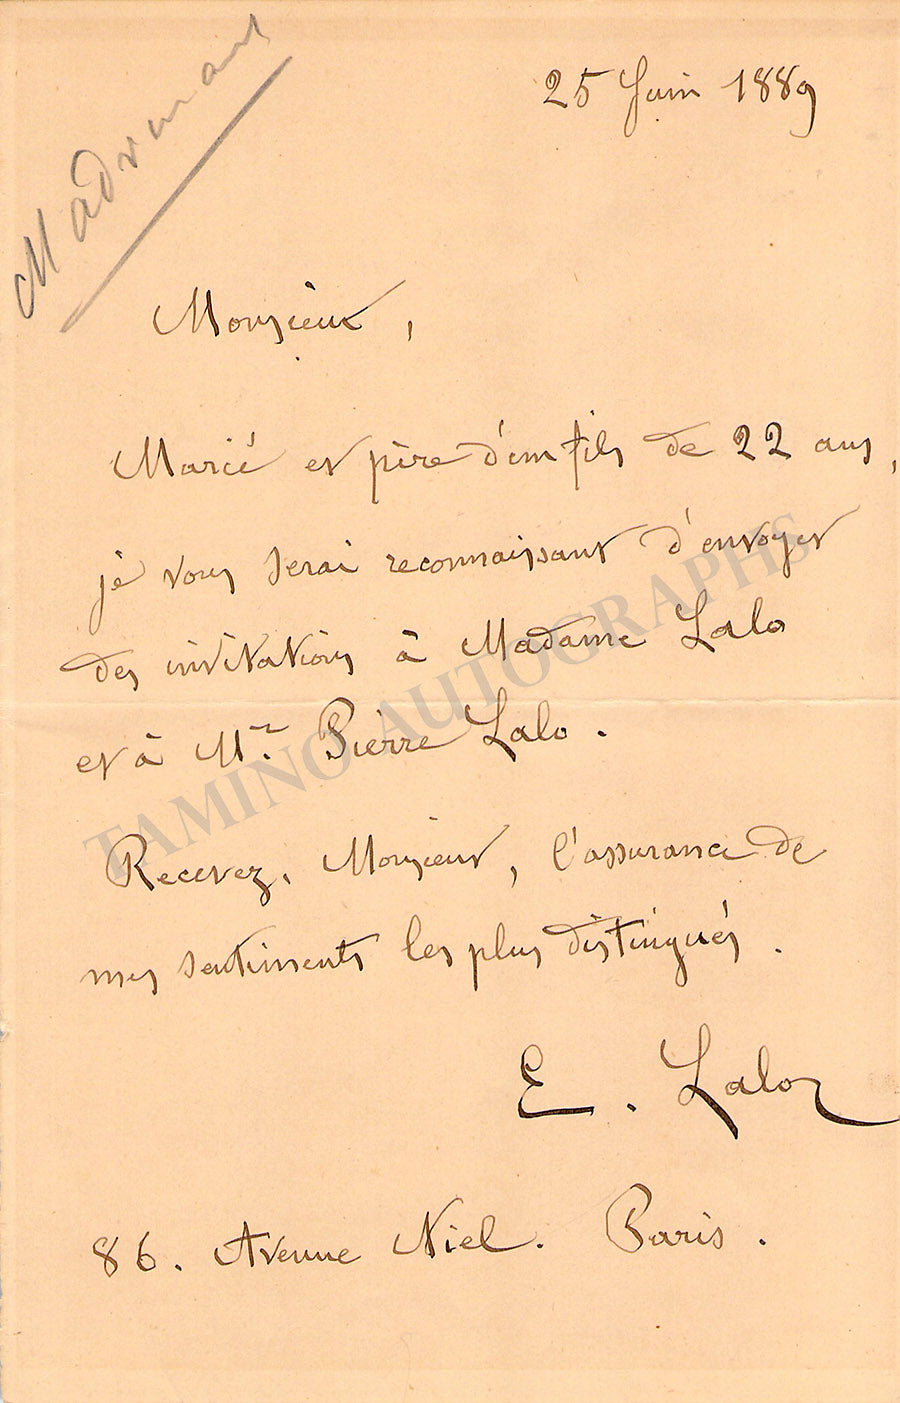 25 Juin 1889
Monsieur,
Marié et père d'un fils de 22 ans,
je vous serai reconnaissant d'envoyer
des invitations à Madame Lalo
et à Mr. Pierre Lalo.
Recevez, Monsieur, l'assurance de
mes sentiments les plus distingués.
E. Lalo
86. Avenue Niel. Paris.
TAMINO AUTOGRAPHS